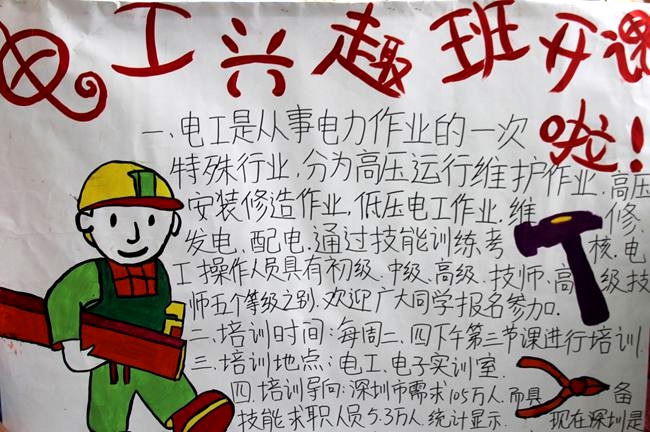 电工兴趣班开课啦!
一、电工是从事电力作业的一次
特殊行业,分为高压运行维护作业.高压
安装修造作业,低压电工作业.维修.
发电、配电.通过技能训练考核.电
工操作人员具有初级、中级、高级、技师、高级技
师五个等级之别.欢迎广大同学报名参加.
二.培训时间:每周二、四下午第三节课进行培训.
三.培训地点:电工、电子实训室
四.培训导向:深圳市需求105万人.而具备
技能求职人员5.3万人.统计显示.现在深圳是